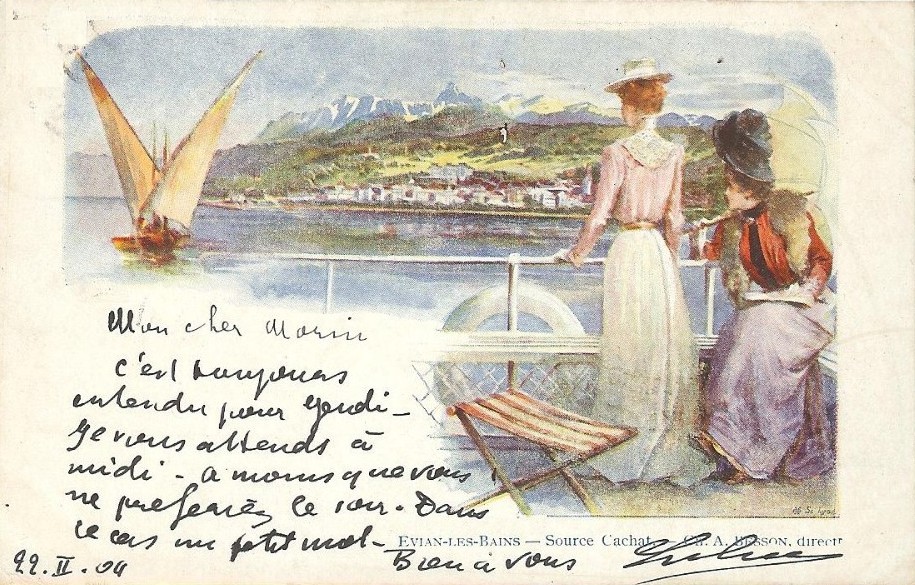 Mon cher Morin
c'est toujours
entendu pour Jeudi -
Je vous attends à
midi - a moins que vous
ne preferiez le soir. Dans
ce cas un petit mot -
EVIAN-LES-BAINS — Source Cachat. Ch. A. BESSON, direct
Bien à vous
22. II. 04